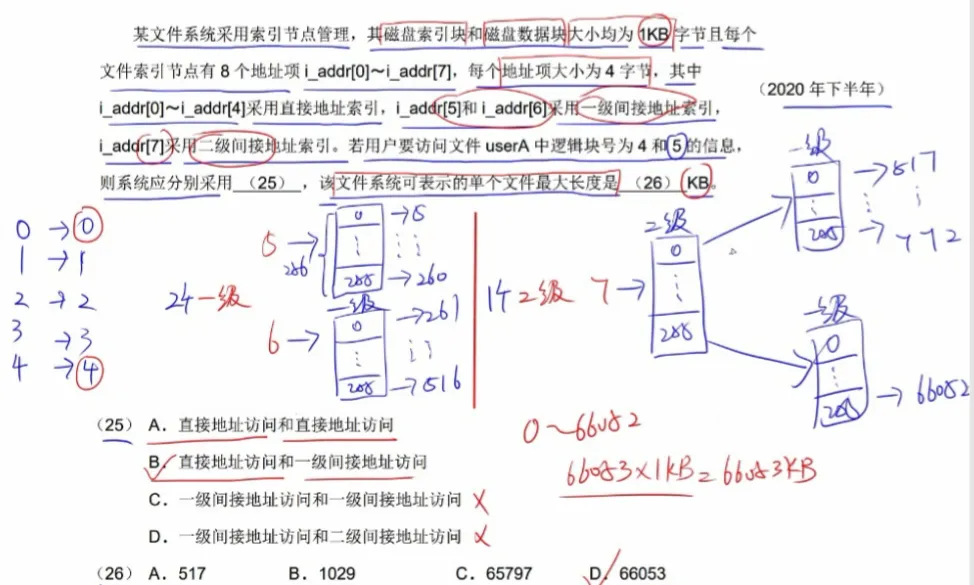 某文件系统采用索引节点管理，其磁盘索引块和磁盘数据块大小均为 1KB 字节且每个
文件索引节点有 8 个地址项 i_addr[0]～i_addr[7]，每个地址项大小为 4 字节，其中
i_addr[0]～i_addr[4]采用直接地址索引，i_addr[5]和 i_addr[6]采用一级间接地址索引，
i_addr[7]采用二级间接地址索引。若用户要访问文件 userA 中逻辑块号为 4 和 5 的信息，
则系统应分别采用 （25） ，该文件系统可表示的单个文件最大长度是 （26） KB。
（2020 年下半年）
0 → 0
1 → 1
2 → 2
3 → 3
4 → 4
2个一级
5 →
256
0 → 5
⋮ ⋮⋮
255 → 260
6 →
一级
0 → 261
⋮ ⋮⋮
255 → 516
1个二级
7 →
二级
0
⋮
255
一级
0 → 517
⋮ ⋮ ⋮
255 → 772
一级
0
⋮
255 → 66052
（25） A．直接地址访问和直接地址访问
B．直接地址访问和一级间接地址访问
C．一级间接地址访问和一级间接地址访问 ×
D．一级间接地址访问和二级间接地址访问 ×
0～66052
66053×1KB=66053KB
（26） A．517 B．1029 C．65797 D．66053